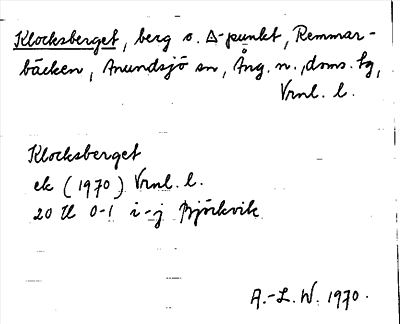 Klocksberget, berg o. Δ-punkt, Remmar-
bäcken, Anundsjö sn, Ång. n., doms. tg,
Vrnl. l.
Klocksberget
ek (1970) Vrnl. l.
20 H 0-1 i-j Björkvik
A.-L. W. 1970.